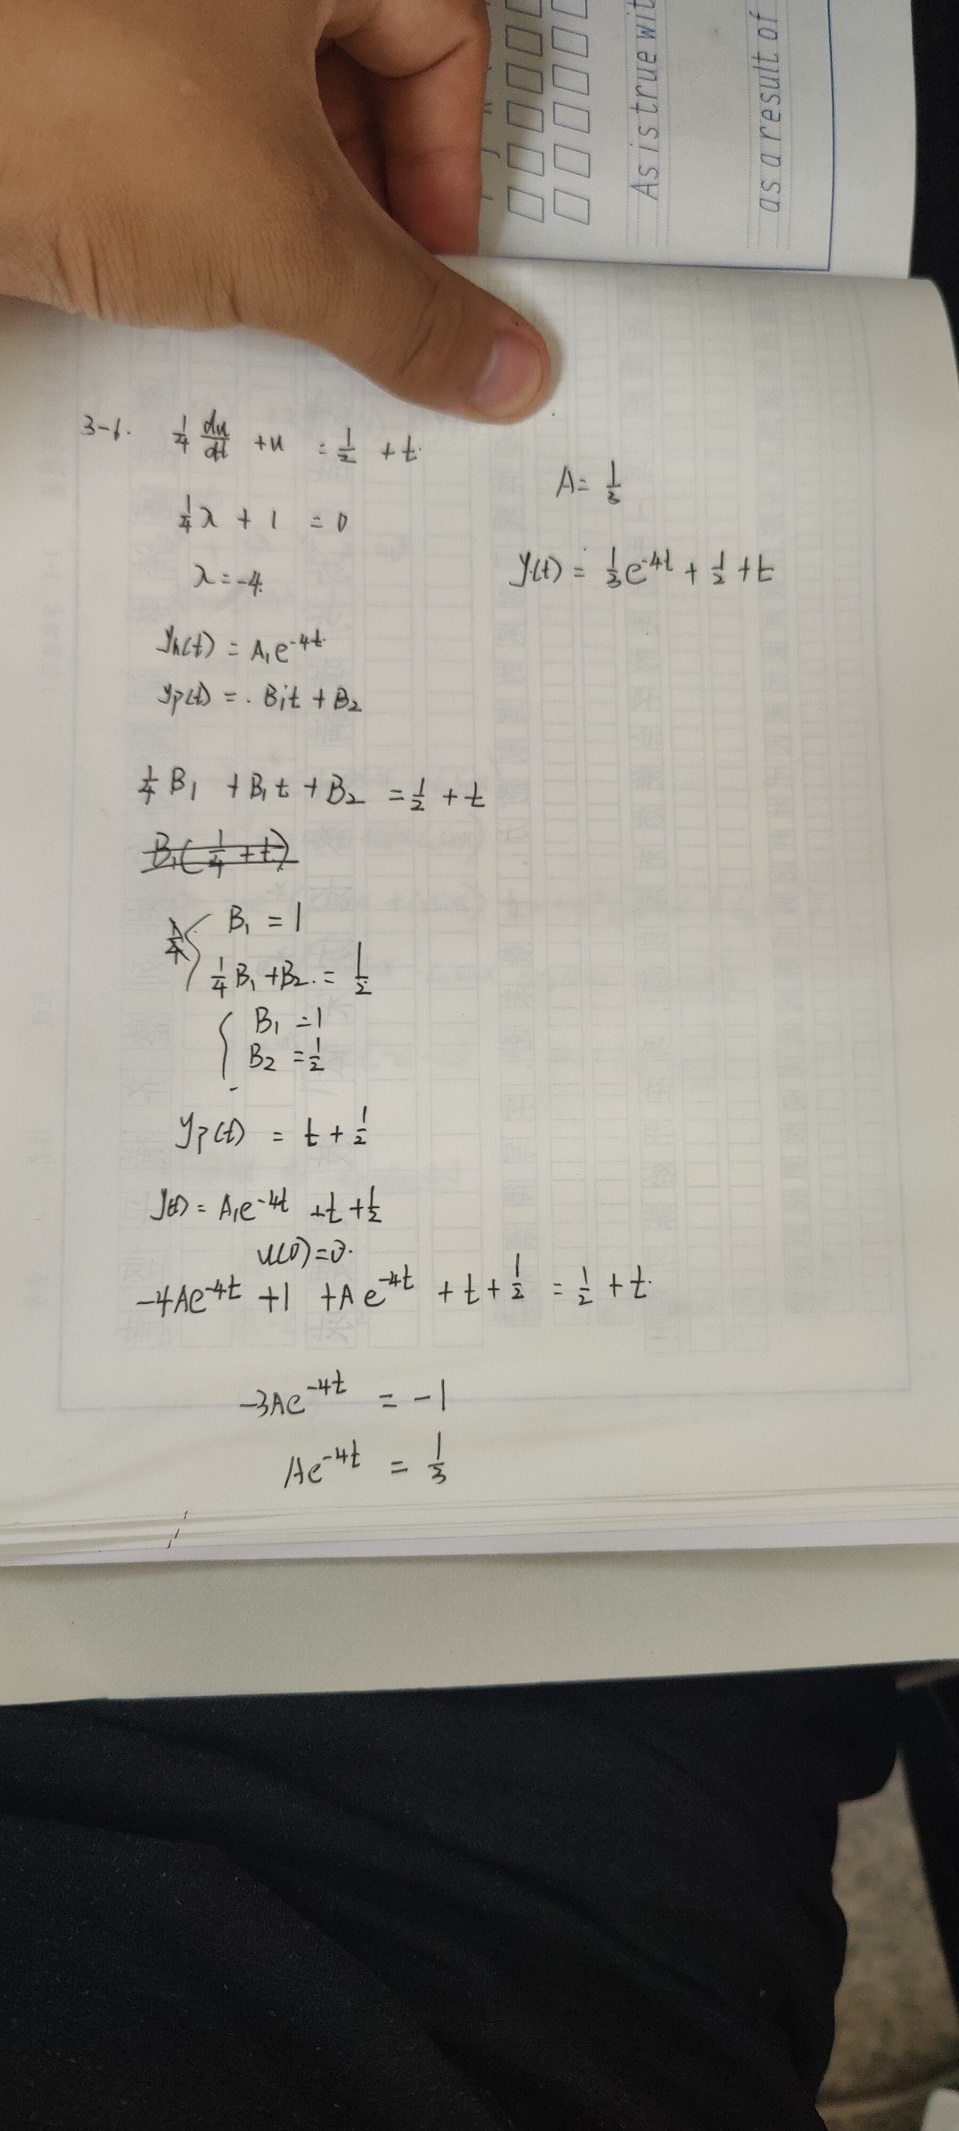 As is true wit
as a result of
3-6. 1/4 du/dt + u = 1/2 + t.
1/4 λ + 1 = 0
λ = -4.
yh(t) = A₁e^-4t.
yp(t) = . B₁t + B₂
1/4 B₁ + B₁t + B₂ = 1/2 + t
B₁(1/4 + t)
{ B₁ = 1
1/4 B₁ + B₂. = 1/2
{ B₁ = 1
B₂ = 1/2
yp(t) = t + 1/2
y(t) = A₁e^-4t + t + 1/2
u(0) = 0.
-4Ae^-4t + 1 + Ae^-4t + t + 1/2 = 1/2 + t.
-3Ae^-4t = -1
Ae^-4t = 1/3
A = 1/3
y(t) = 1/3 e^-4t + 1/2 + t